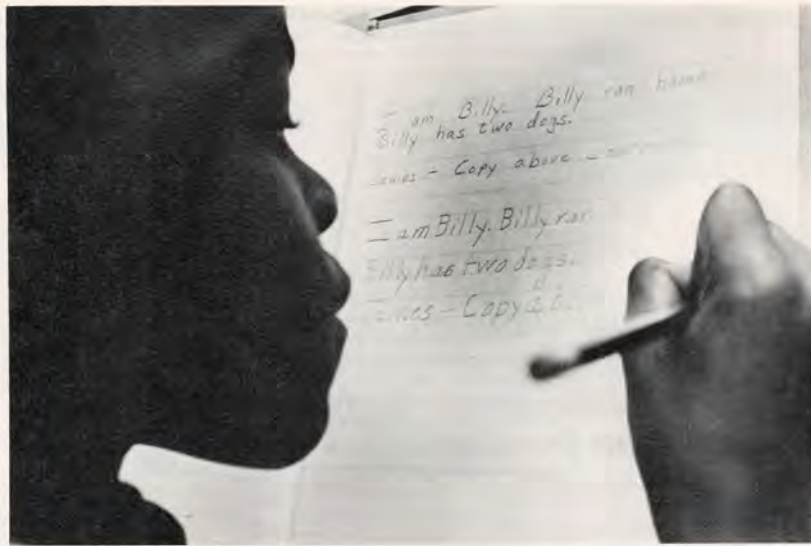 I am Billy. Billy ran home
Billy has two dogs.
- Copy above -
I am Billy. Billy ran
Billy has two dogs.
- Copy